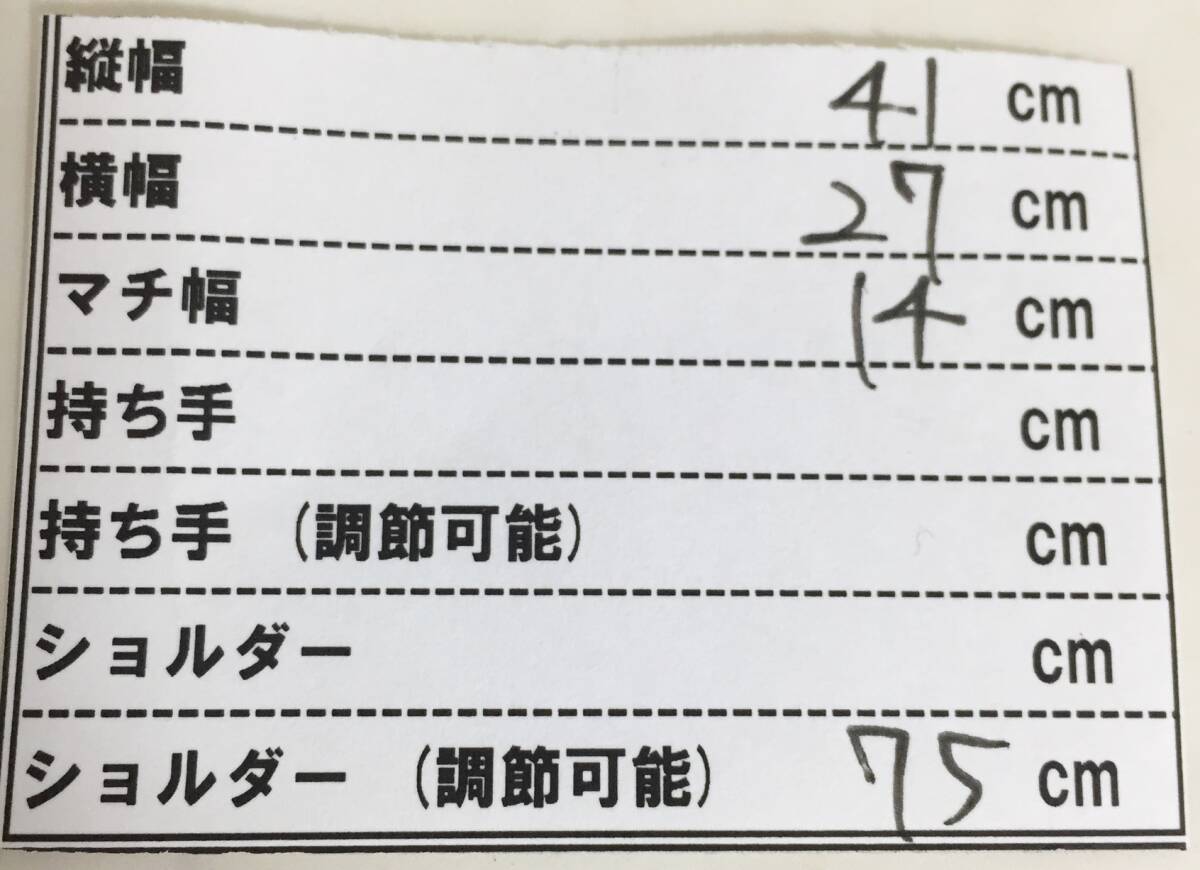 縦幅 41 cm
横幅 27 cm
マチ幅 14 cm
持ち手 cm
持ち手 (調節可能) cm
ショルダー cm
ショルダー (調節可能) 75 cm